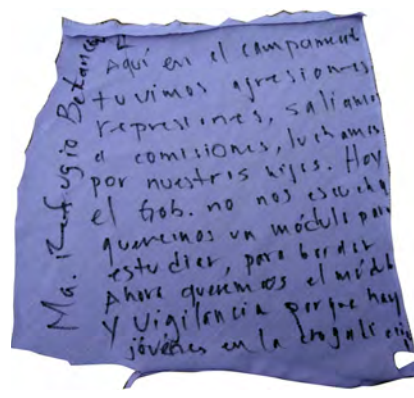 Ma. Refugio Betanco
Aquí en el campament
tuvimos agresiones
represiones, saliamos
a comisiones, luchamos
por nuestros hijos. Hoy
el Gob. no nos escucha
queremos un módulo para
estudiar, para bordar
Ahora queremos el módul
y vigilancia porque hay
jóvenes en la